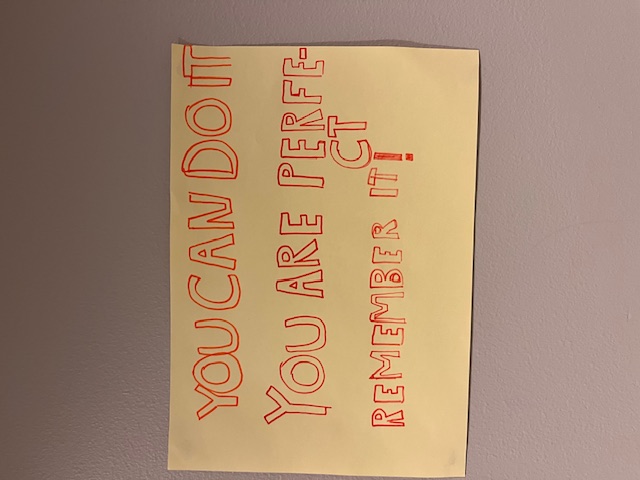 YOU CAN DO IT
YOU ARE PERFE-
CT
REMEMBER IT!